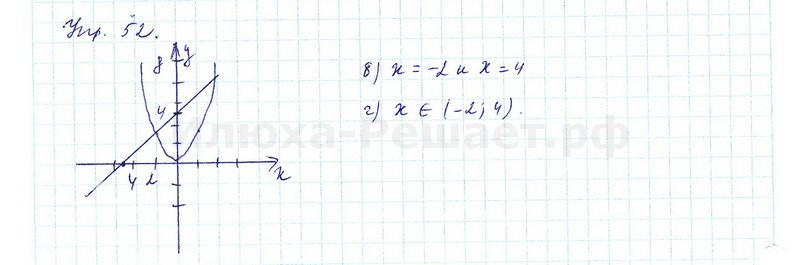 Упр. 52.
8 y
4
4 2 x
в) x = -2 и x = 4
г) x ∈ (-2; 4).
Илюха-Решает.рф